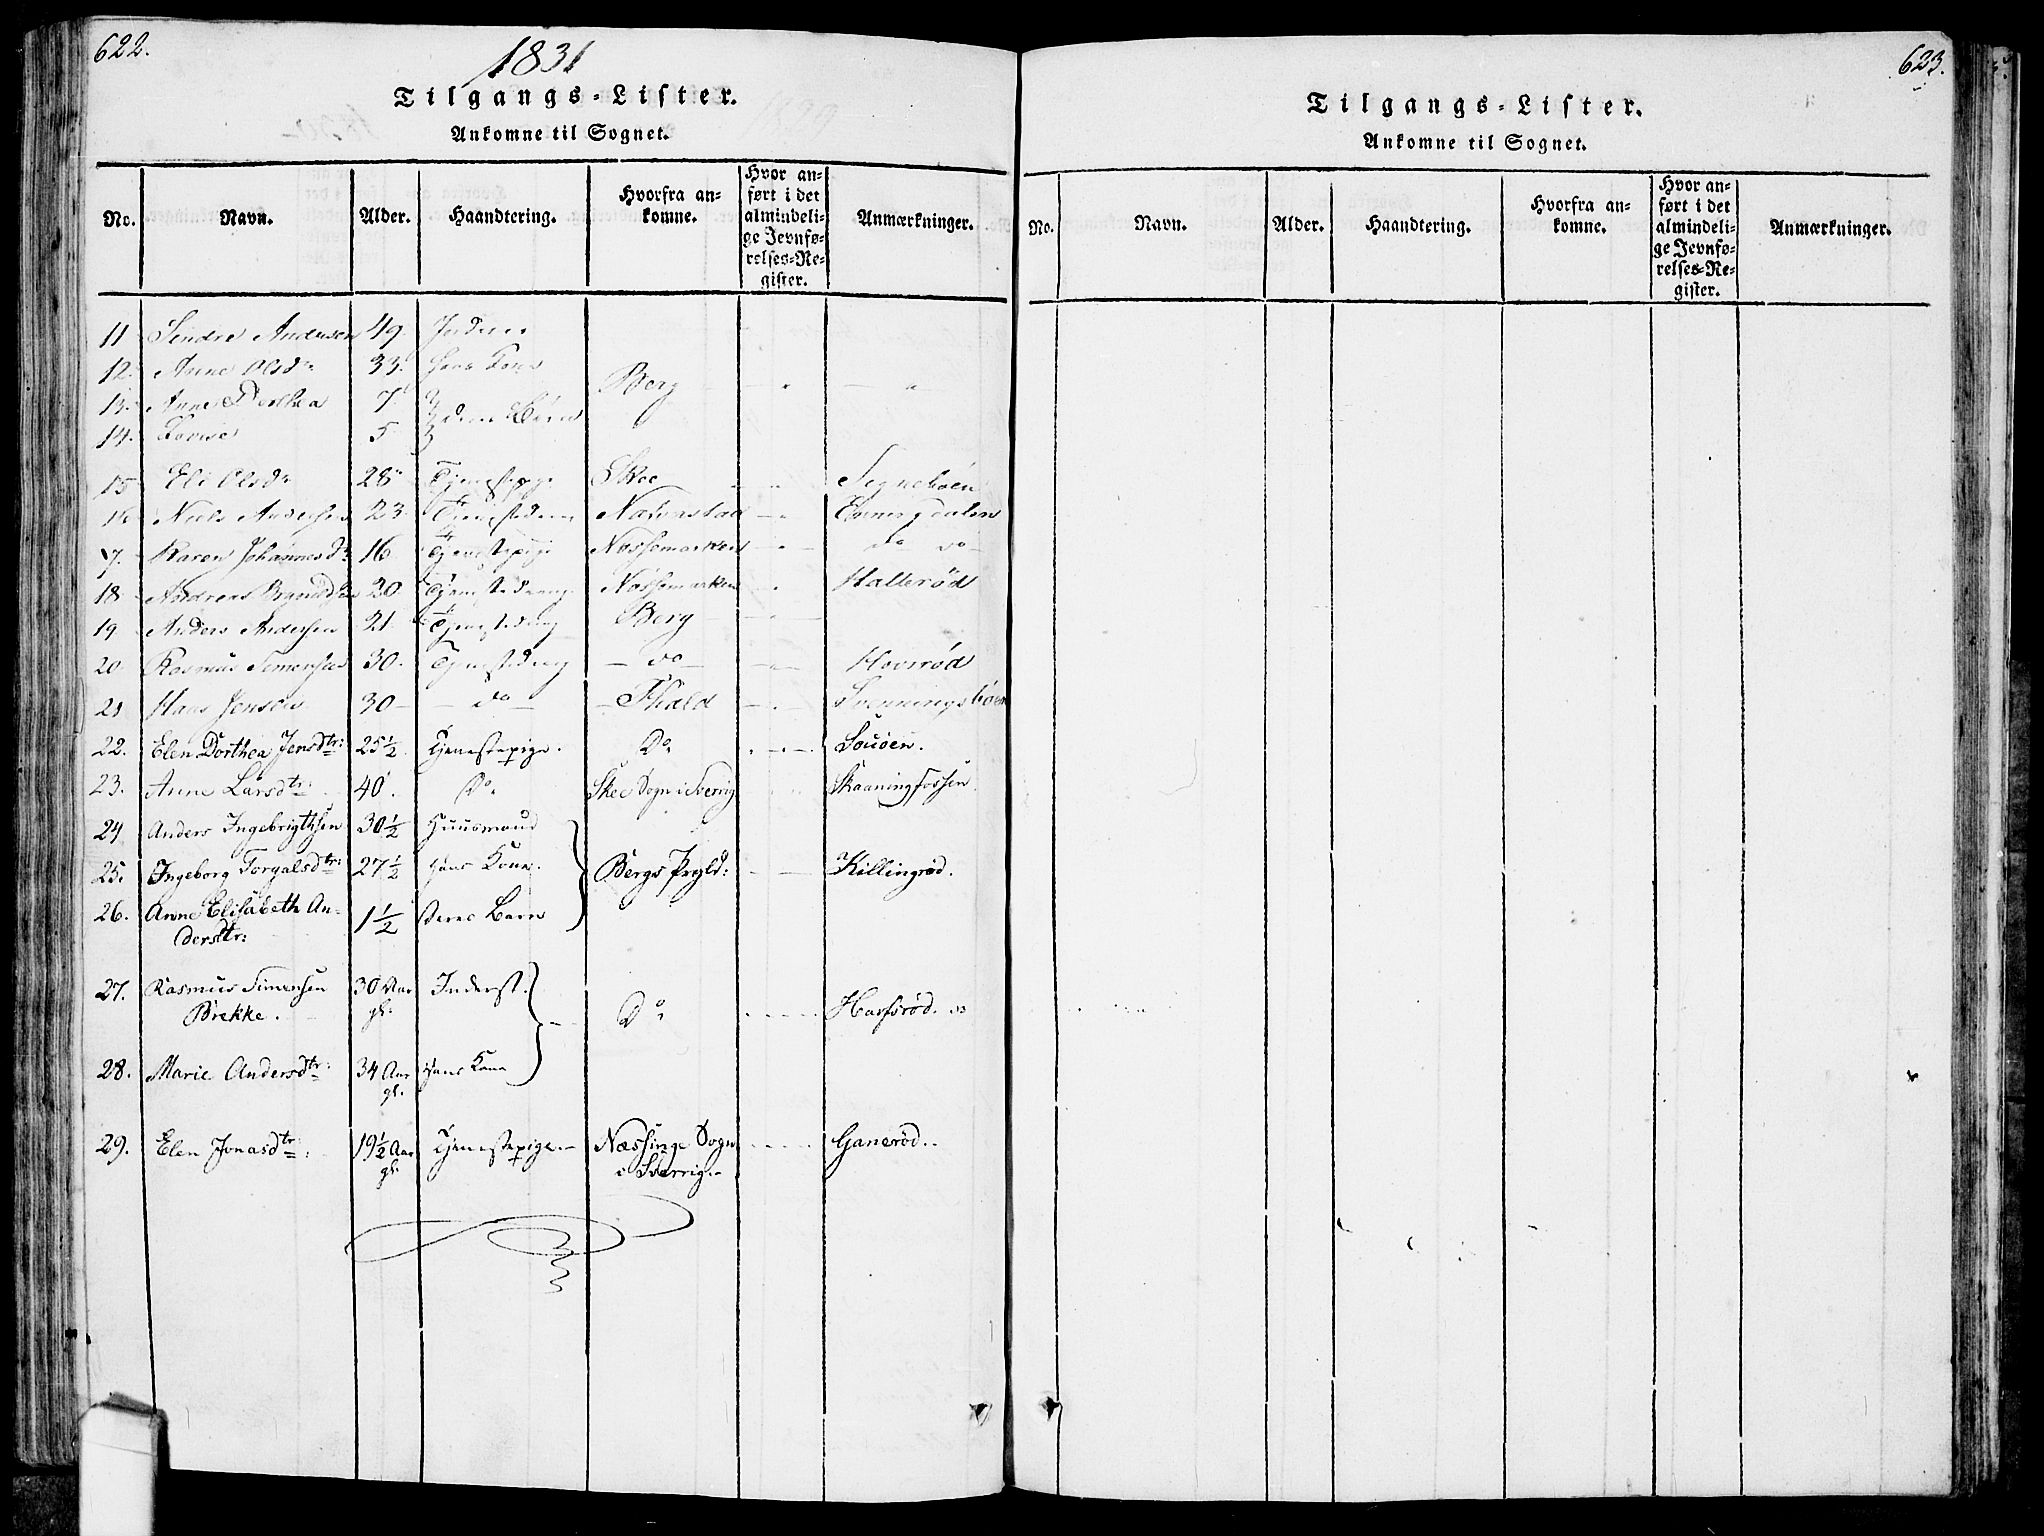 622.
1831
Tilgangs-Lister.
Ankomne til Sognet.
No. Navn. Alder. Haandtering. Hvorfra an- komne. Hvor an- ført i det almindeli- ge Jevnfø- relses-Re- gister. Anmærkninger.
11 Sindre Andersen 49.
12. Anne Olsdr 33. hans Kone
13. Anne Dorthea 7 Berg
14. Lovise 5 deres Børn
15 Eli Olsdr 28 Tjenestepige Skee
16 Niels Andersen 23. Tjenestedreng Naverstad Enningdalen
17. Karen Johannesdr 16 Tjenestepige Nossemarken do do
18 Andreas 20 Tjenestedreng Nossemarken Hallerød
19 Anders Andersen 21 Tjenestedreng Berg
20 Rasmus Simensen 30. Tjenestedreng do Hovsrød
21 Hans Jensen 30 do Fhald Svenningsbøen
22. Elen Dorthea Jensdtr: 25½ Tjenestepige. Do
23. Anne Larsdtr: 40. Do Skee Sogn i Sverrig Skaaningfossen
24 Anders Ingebrigthsen 30½ Huusmand
25. Ingeborg Torgalsdtr: 27½ hans Kone. Bergs Prgld: Killingrød.
26. Anne Elisabeth An- 1½ deres Barn
dersdtr:
27. Rasmus Simensen 30 Aar Inderst.
Brekke. gl: Do
28. Marie Andersdtr: 34 Aar hans Kone
gl.
29. Elen Jonasdtr: 19½ Aar Tjenestepige. Næssinge Sogn Ganerød.
gl. i Sverrig.
623.
Tilgangs-Lister.
Ankomne til Sognet.
No. Navn. Alder. Haandtering. Hvorfra an- komne. Hvor an- ført i det almindeli- ge Jevnfø- relses-Re- gister. Anmærkninger.